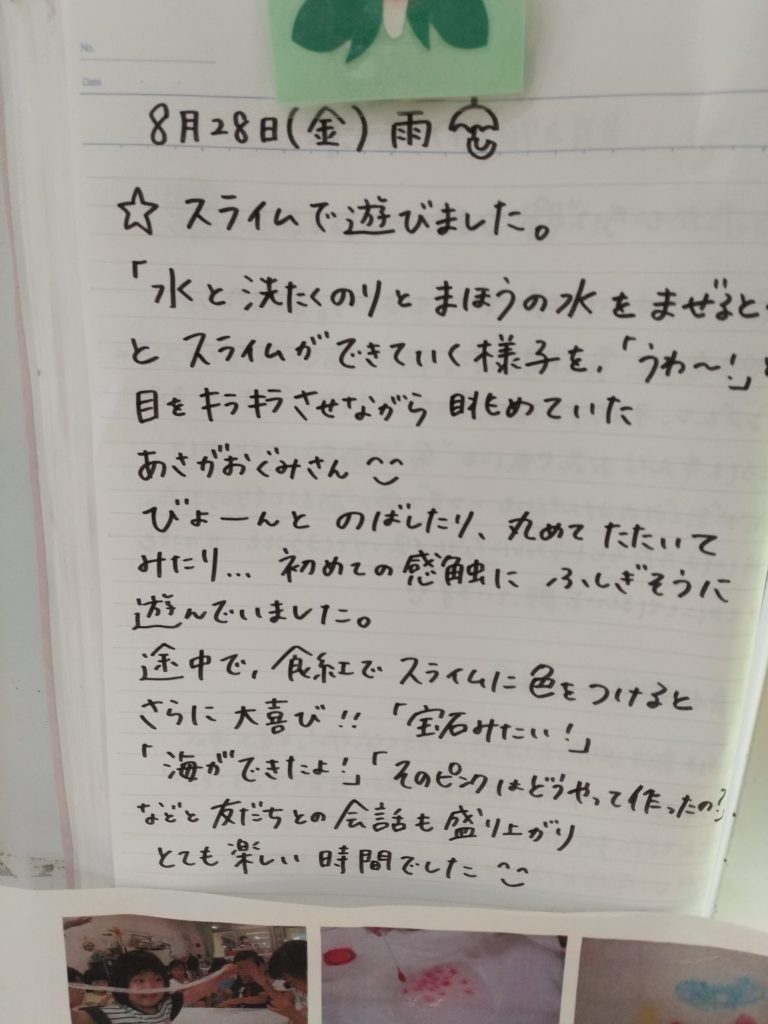 No.
Date
8月28日(金) 雨
☆ スライムで遊びました。
「水と洗たくのりとまほうの水をまぜると
とスライムができていく様子を、「うわ〜!」
目をキラキラさせながら眺めていた
あさがおぐみさん
びょーんとのばしたり、丸めてたたいて
みたり... 初めての感触にふしぎそうに
遊んでいました。
途中で、食紅でスライムに色をつけると
さらに大喜び!!「宝石みたい!」
「海ができたよ!」「そのピンクはどうやって作ったの?
などと友だちとの会話も盛り上がり
とても楽しい時間でした